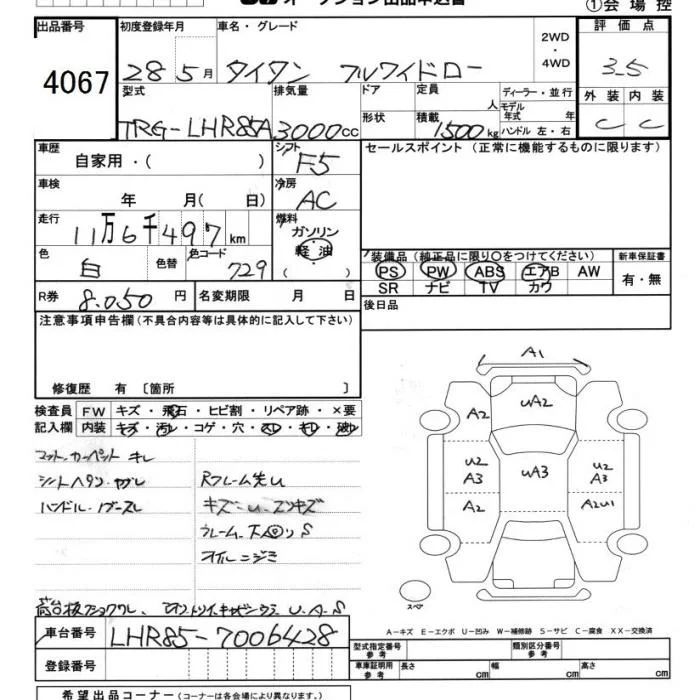 オークション出品申込書
①会場控
出品番号
4067
初度登録年月
28 5月
車名・グレード
タイタン フルワイドロー
2WD
・
4WD
評価点
3.5
外装 内装
C C
型式
TRG-LHR85A
排気量
3000cc
ドア
形状
定員
人
積載
1500kg
ディーラー・並行
モデル
年式 年
ハンドル 左・右
車歴
自家用・( )
シフト
F5
セールスポイント (正常に機能するものに限ります)
車検
年 月( 日)
冷房
AC
走行
11万6千497km
燃料
ガソリン
軽油
色
白
色替
色コード
729
装備品 (純正品に限り○をつけてください)
PS PW ABS エアB AW
SR ナビ TV カワ
新車保証書
有・無
R券
8.050円
名変期限 月 日
後日品
注意事項申告欄 (不具合内容等は具体的に記入して下さい)
修復歴 有 〔箇所 〕
検査員
記入欄
FW キズ・飛石・ヒビ割・リペア跡・×要
内装 キズ・汚レ・コゲ・穴・スレ・キレ・破レ
マット、カーペット キレ
シートヘタリ・ヤブレ
ハンドル・ノブスレ
Rフレーム先U
キズ・U、スリキズ
フレーム、下回りS
オイルニジミ
U.A.S
A1
A2
UA2
U2
A3
UA3
U2
A3
A2
A2U1
スペア
A-キズ E-エクボ U-凹み W-補修跡 S-サビ C-腐食 XX-交換済
車台番号
LHR85-7006428
登録番号
型式指定番号
参考
類別区分番号
参考
車庫証明用
参考
長さ cm
幅 cm
高さ cm
希望出品コーナー (コーナーは各会場により異なります。)